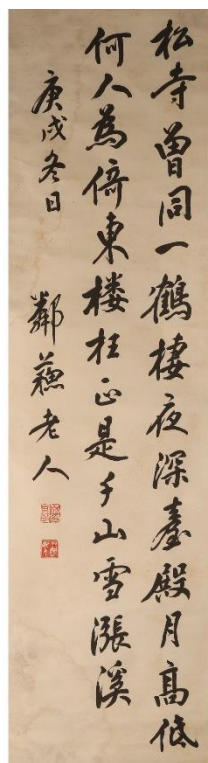 松寺曾同一鶴棲夜深臺殿月高低
何人為倚東楼柱正是千山雪漲溪
庚戌冬日 鄰蘓老人